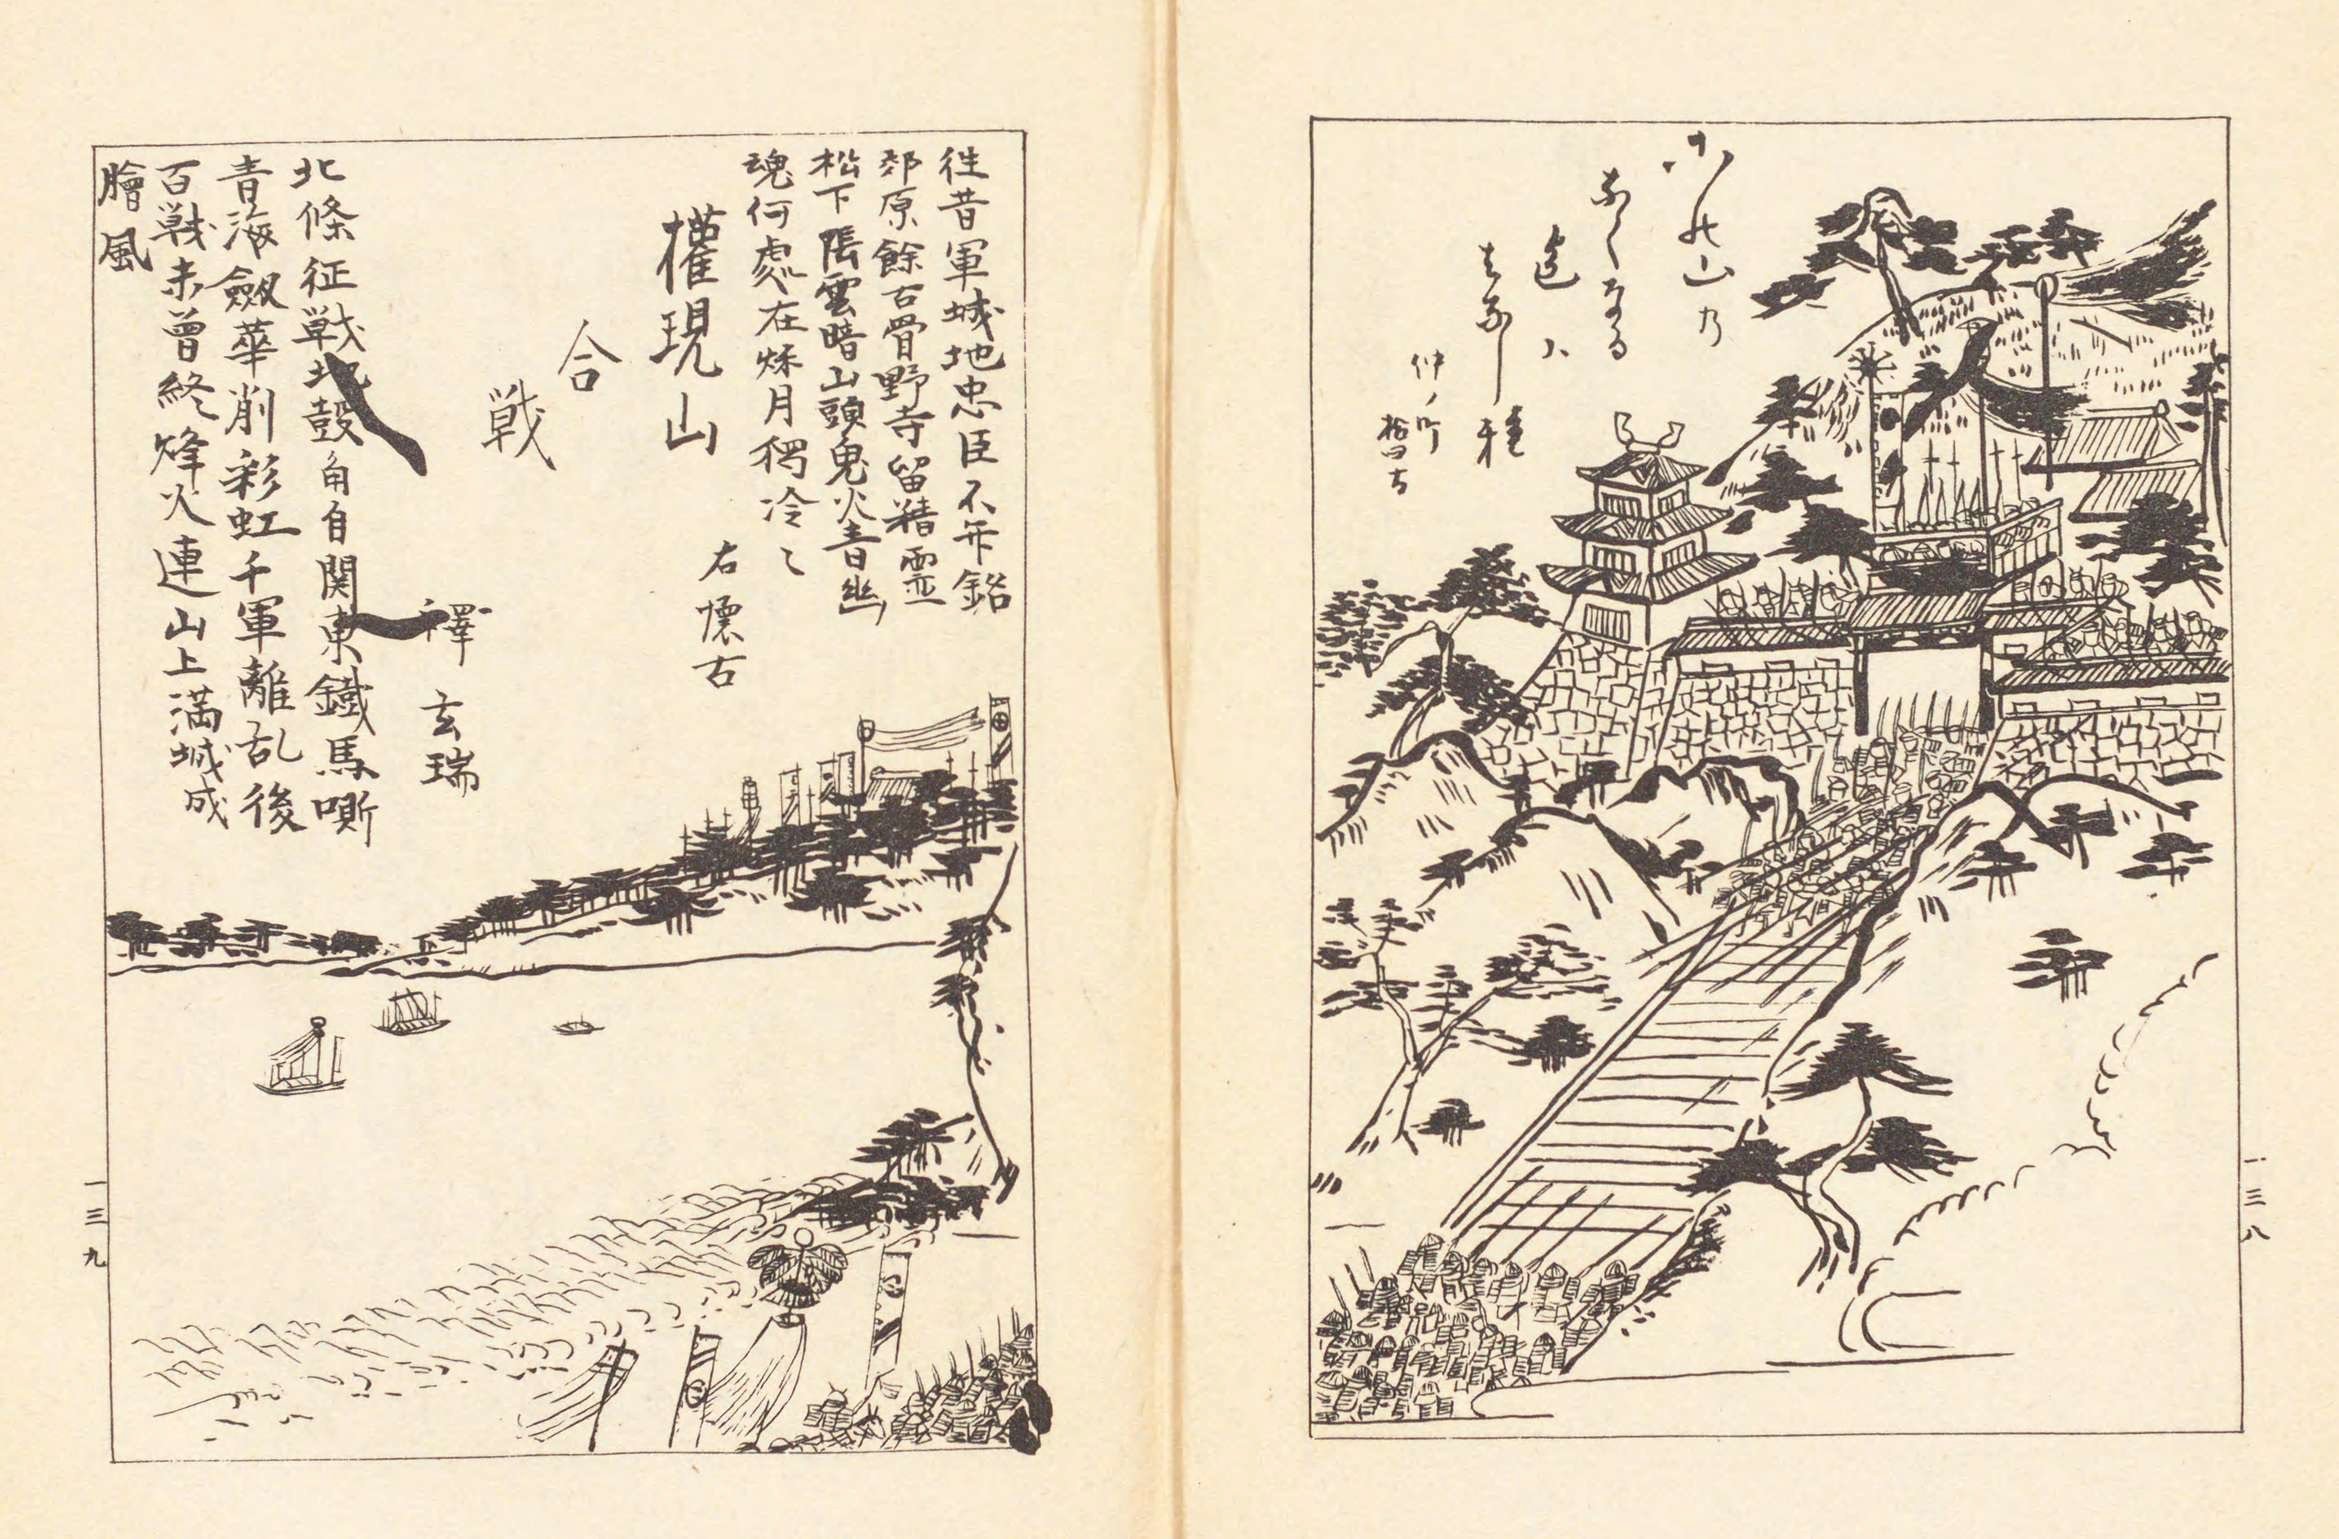 山乃
仲ノ町
一三八
徃昔軍城地忠臣不弃銘
郊原餘古骨野寺留精霊
松下陰雲暗山頭鬼火青幽
魂何處在秌月獨冷〻
右懐古
權現山
合
戦
釋玄瑞
北條征戦地鼓角自関東鐵馬嘶
青海劔華削彩虹千軍離乱後
百戦未曾終烽火連山上満城成
膾風
一三九